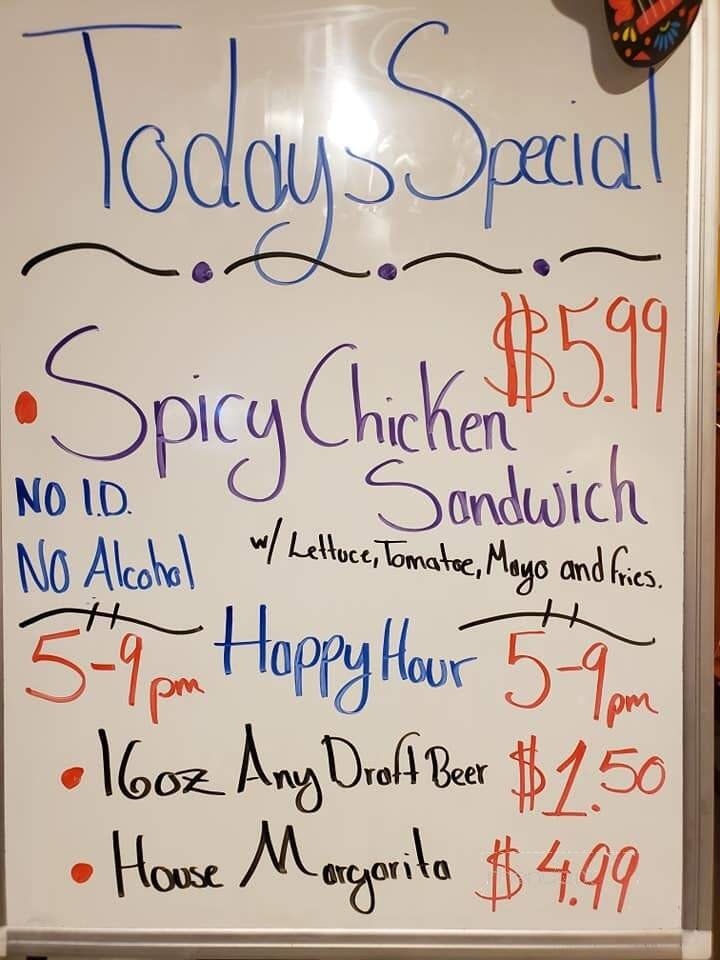 Todays Special
$5.99
Spicy Chicken
Sandwich
NO I.D.
NO Alcohol
w/ Lettuce, Tomatoe, Mayo and fries.
5-9pm Happy Hour 5-9pm
16oz Any Draft Beer $1.50
House Margarita $4.99